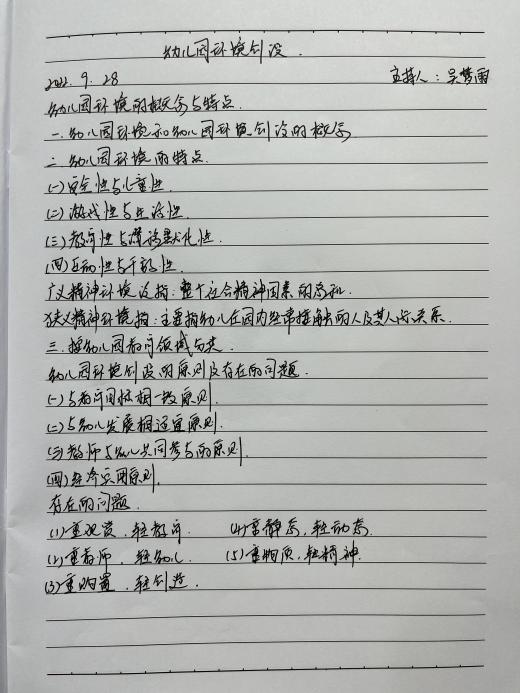 幼儿园环境创设.
2022. 9. 28 主持人: 吴梦雨
幼儿园环境的概念与特点.
一.幼儿园环境和幼儿园环境创设的概念
二.幼儿园环境的特点.
(一)安全性与儿童性.
(二)游戏性与生活性.
(三)教育性与潜移默化性.
(四)互动性与干预性.
广义精神环境泛指:整个社会精神因素的总和.
狭义精神环境指:主要指幼儿在园内经常接触的人及其人与关系.
三.按幼儿园教育领域与其
幼儿园环境创设的原则及存在的问题.
(一)与教育目标相一致原则.
(二)与幼儿发展相适宜原则.
(三)教师与幼儿共同参与的原则.
(四)经济实用原则.
存在的问题.
(1)重观赏,轻教育. (4)重静态,轻动态.
(2)重教师,轻幼儿. (5)重物质,轻精神.
(3)重购置,轻创造.